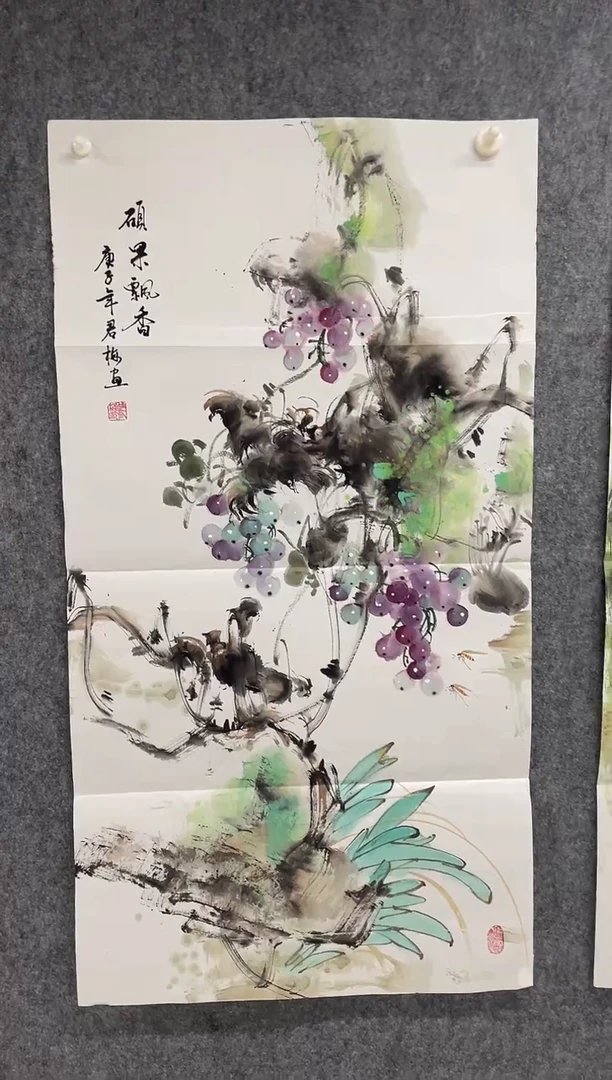 碩果飄香
庚子年君梅画